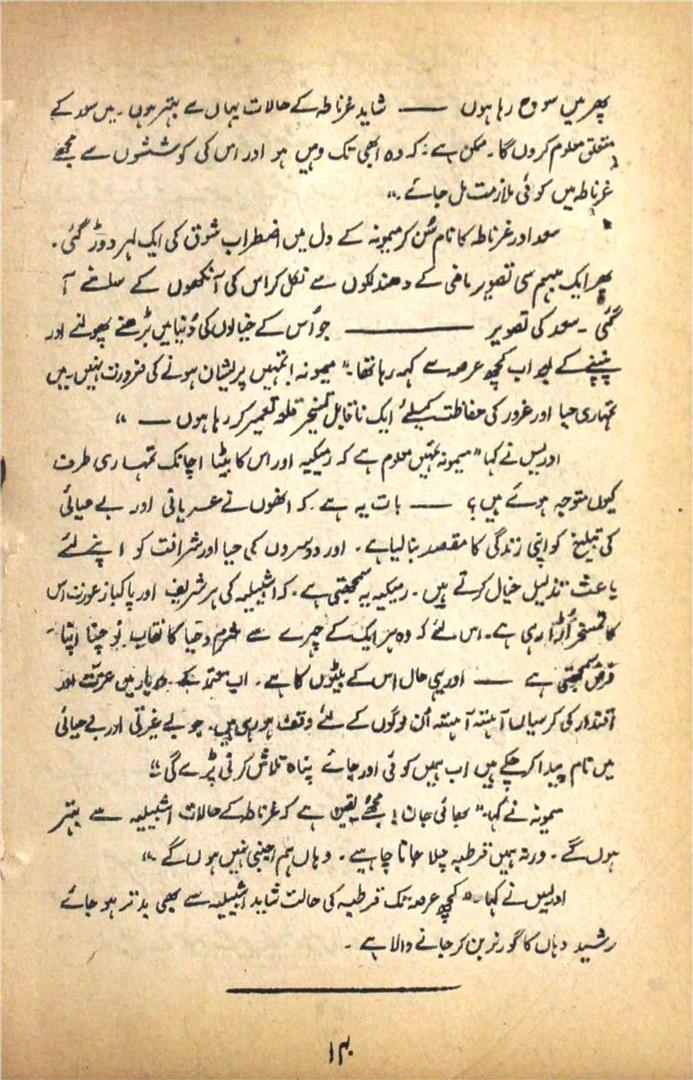 پھر میں سوچ رہا ہوں —— شاید غرناطہ کے حالات یہاں سے بہتر ہوں۔ میں سعد کے
متعلق معلوم کروں گا۔ ممکن ہے۔ کہ وہ ابھی تک وہیں ہو اور اس کی کوششوں سے مجھے
غرناطہ میں کوئی ملازمت مل جائے۔“
سعد اور غرناطہ کا نام سُن کر میمونہ کے دل میں اضطراب شوق کی ایک لہر دوڑ گئی۔
پھر ایک مبہم سی تصویر ماضی کے دھندلکوں سے نکل کر اس کی آنکھوں کے سامنے آ
گئی۔ سعد کی تصویر ———— جو اُس کے خیالوں کی دُنیا میں بڑھنے پھولنے اور
پنپنے کے بعد اب کچھ عرصہ سے کہہ رہا تھا۔ ”میمونہ! تمہیں پریشان ہونے کی ضرورت نہیں۔ میں
تمہاری حیا اور غرور کی حفاظت کیلئے ایک ناقابل تسخیر قلعہ تعمیر کر رہا ہوں —“
ادریس نے کہا ”میمونہ تمہیں معلوم ہے کہ رمیکیہ اور اس کا بیٹا اچانک تمہاری طرف
کیوں متوجہ ہوئے ہیں؟ —— بات یہ ہے۔ کہ انھوں نے عریانی اور بے حیائی
کی تبلیغ کو اپنی زندگی کا مقصد بنا لیا ہے۔ اور دوسروں کی حیا اور شرافت کو اپنے لئے
باعث تذلیل خیال کرتے ہیں۔ رمیکیہ یہ سمجھتی ہے۔ کہ اشبیلیہ کی ہر شریف اور پاکباز عورت اس
کا تمسخر اُڑا رہی ہے۔ اس لئے کہ وہ ہر ایک کے چہرے سے شرم و حیا کا نقاب نوچنا اپنا
فرض سمجھتی ہے —— اور یہی حال اس کے بیٹوں کا ہے۔ اب معتمد کے دربار میں عزت اور
اقتدار کی کرسیاں آہستہ آہستہ اُن لوگوں کے لئے وقف ہو رہی ہیں۔ جو بے غیرتی اور بے حیائی
میں نام پیدا کر چکے ہیں اب ہمیں کوئی اور جائے پناہ تلاش کرنی پڑے گی“
میمونہ نے کہا۔ ”بھائی جان! مجھے یقین ہے کہ غرناطہ کے حالات اشبیلیہ سے بہتر
ہوں گے۔ ورنہ ہمیں قرطبہ چلا جانا چاہیے۔ وہاں ہم اجنبی نہیں ہوں گے۔“
ادریس نے کہا۔ ”کچھ عرصہ تک قرطبہ کی حالت شاید اشبیلیہ سے بھی بدتر ہو جائے
رشید وہاں کا گورنر بن کر جانے والا ہے۔